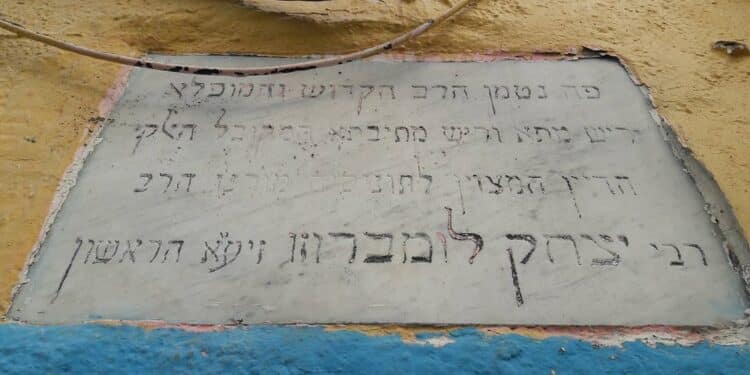 פה נטמן הרב הקדוש והמופלא
ריש מתא וריש מתיבתא המקובל האלקי
הדיין המצוין לתונילים מורנו הרב
רבי יצחק לומברוזו זיע״א הראשון